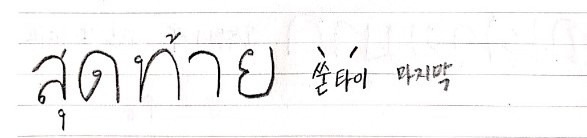 สุดท้าย 쑫타이 마지막